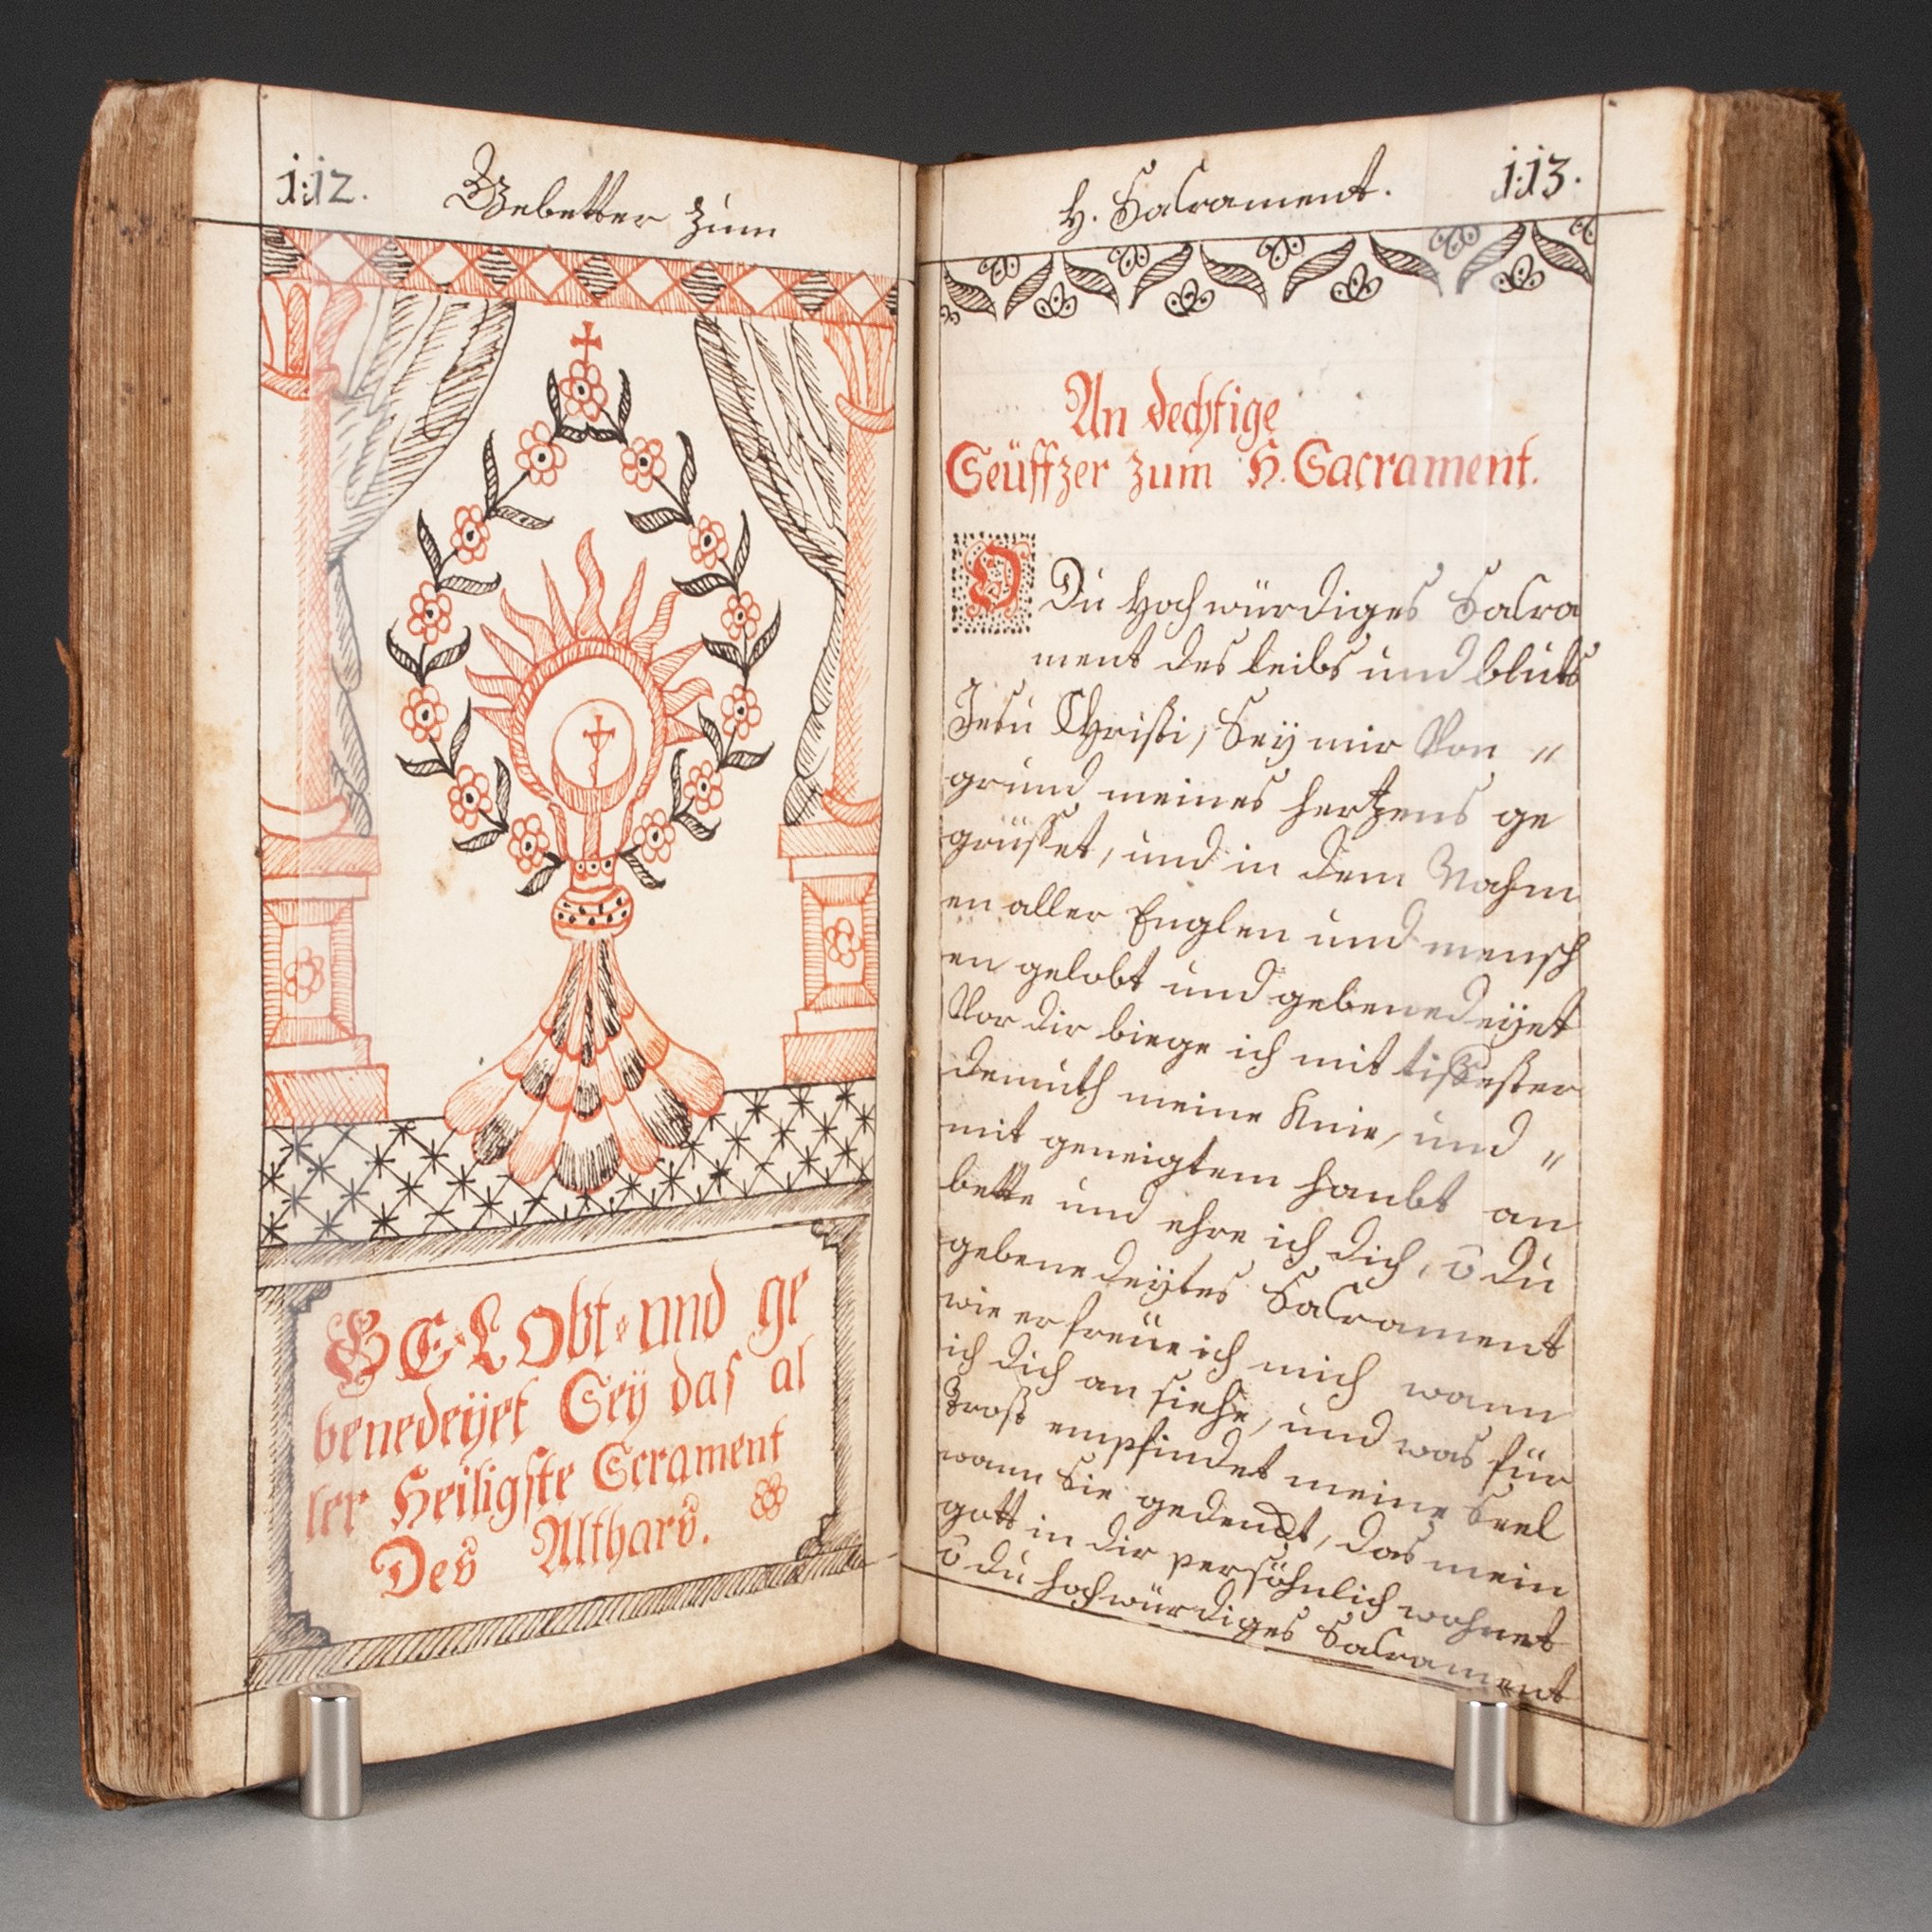 112.
Gebetter zum
GELObt und ge
benedeÿet Seÿ das al
ler Heiligste Scrament
Des Althars.
H. Sacrament.
113.
An dechtige
Seüffzer zum H. Sacrament.
O Du Hochwürdiges Sacra
ment des leibs und bluts
Jesu Christi, Seÿ mir Von "
grund meines hertzens ge
grüsset, und in dem Nahm
en aller Englen und mensch
en gelobt und gebenedeÿet
Vor dir biege ich mit
demuth meine Knie, und "
mit geneigtem haubt an
bette und ehre ich dich, ô du
gebenedeÿtes Sacrament
wie erfreüe ich mich wann
ich dich an siehe, und was für
Trost empfindet meine Seel
wann Sie gedenckt, das mein
gott in dir persöhnlich wohnet
ô du hochwürdiges Sacrament